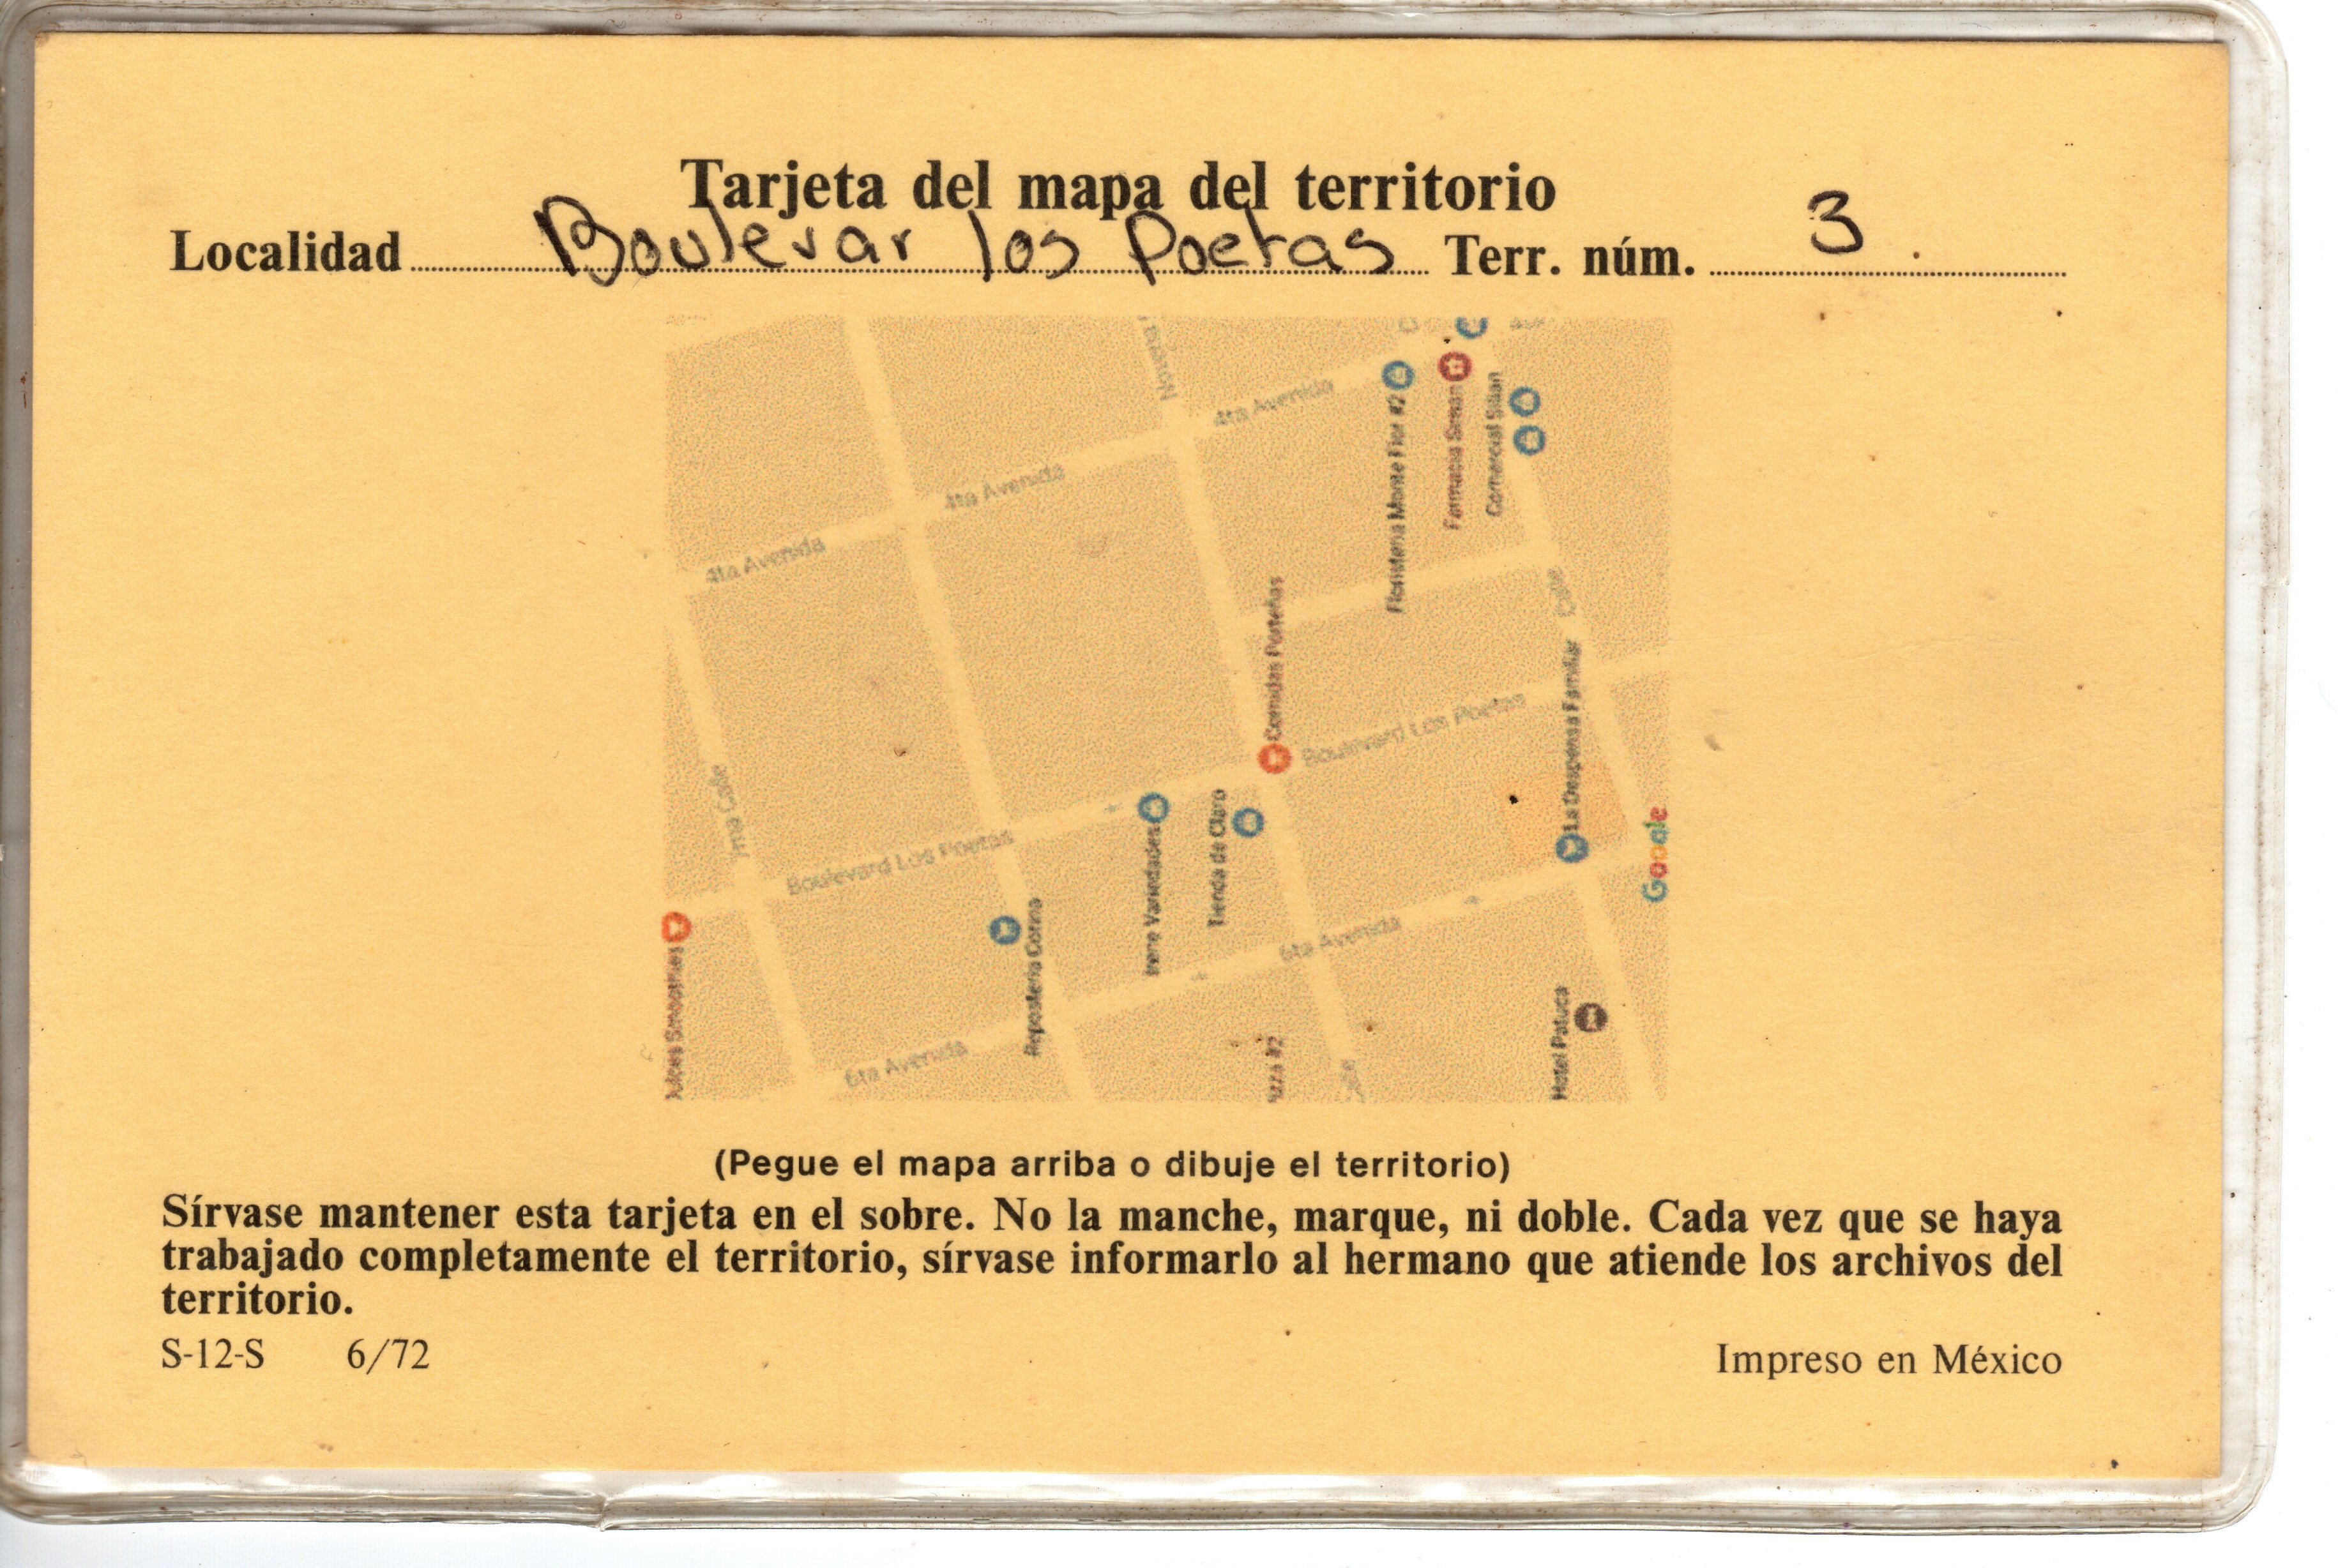 Tarjeta del mapa del territorio
Localidad Boulevar los Poetas Terr. núm. 3
4ta Avenida
4ta Avenida
4ta Avenida
Floristeria Monte Flor #2
Farmacia Siman
Comercial
Calle
Comidas Porteñas
Boulevard Los Poetas
La Despensa Familiar
Calle
Boulevard Los Poetas
Tienda de Claro
Irene Variedades
Repostería
Smoothies
6ta Avenida
6ta Avenida
#2
Hotel Patuca
Google
(Pegue el mapa arriba o dibuje el territorio)
Sírvase mantener esta tarjeta en el sobre. No la manche, marque, ni doble. Cada vez que se haya
trabajado completamente el territorio, sírvase informarlo al hermano que atiende los archivos del
territorio.
S-12-S 6/72
Impreso en México